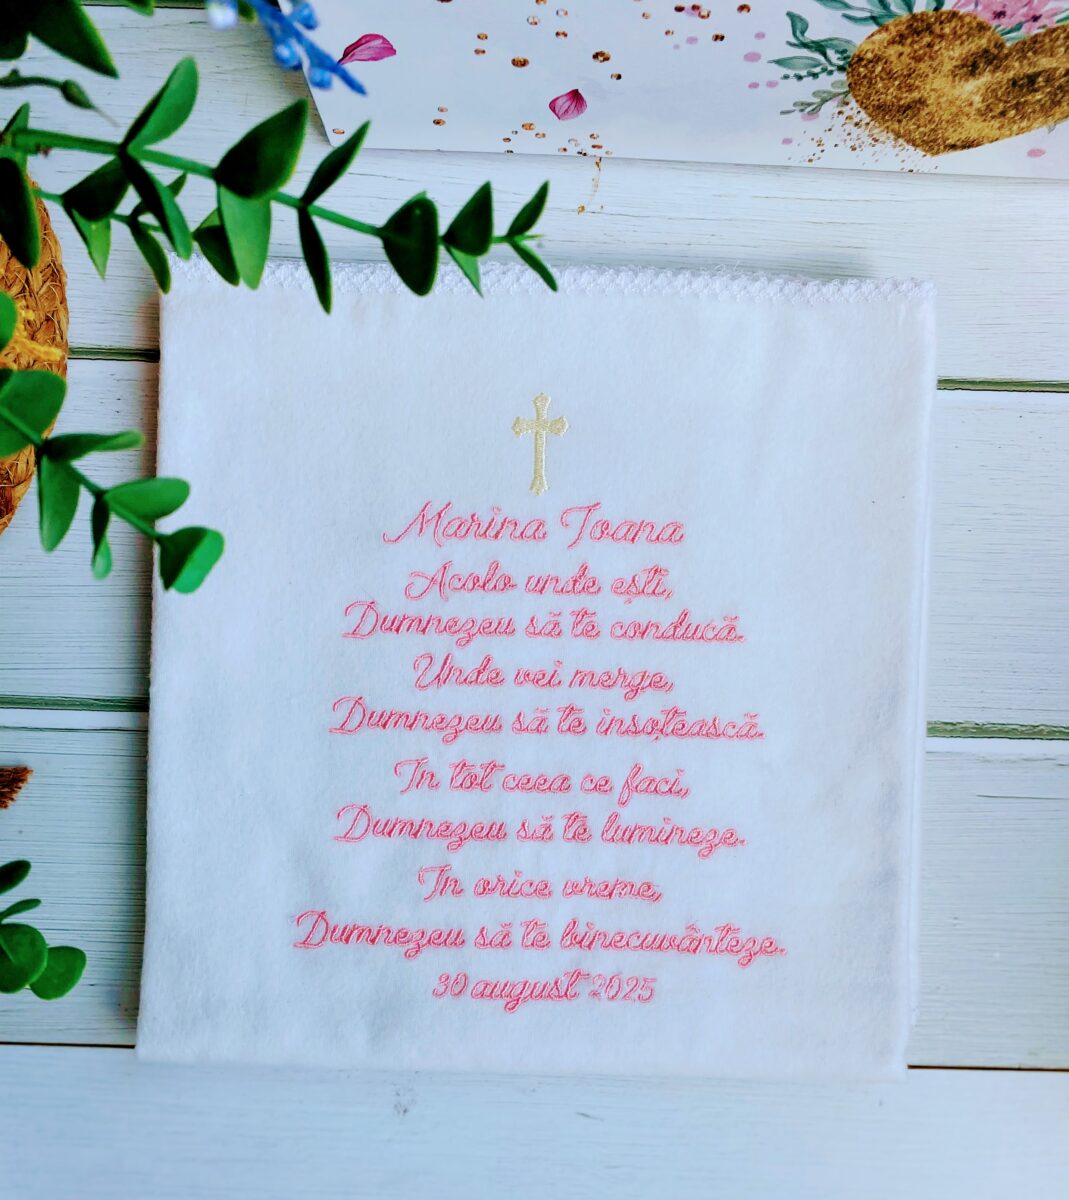 Marina Ioana
Acolo unde ești,
Dumnezeu să te conducă.
Unde vei merge,
Dumnezeu să te insoțească.
In tot ceea ce faci,
Dumnezeu să te lumineze.
In orice vreme,
Dumnezeu să te binecuvânteze.
30 august 2025